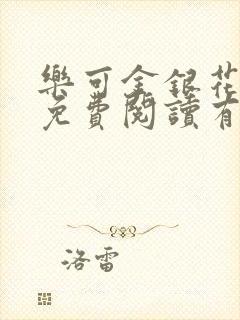 樂可金銀花
免費閱讀有
洛雷